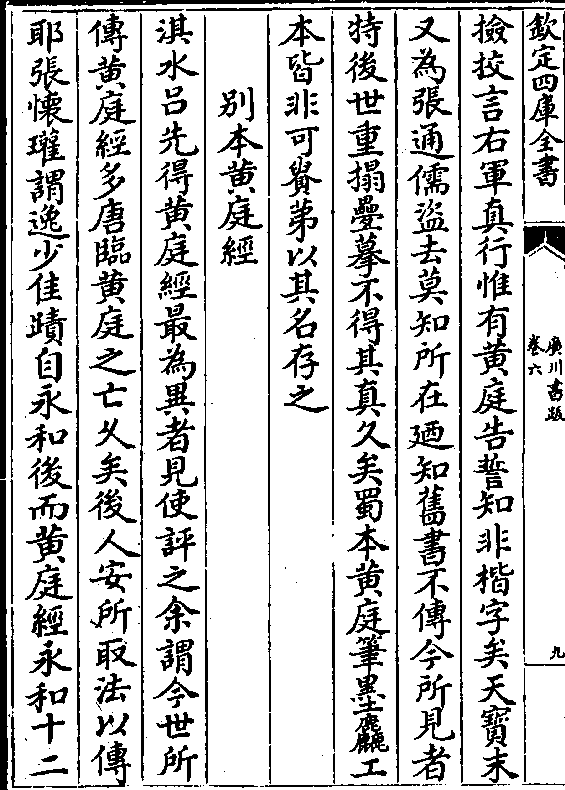 欽定四庫全書
廣川書跋
卷六
九
撿挍言右軍真行惟有黄庭告誓知非楷字矣天寳末
又為張通儒盜去莫知所在廼知舊書不傳今所見者
特後世重搨疊摹不得其真久矣蜀本黄庭筆墨麄工
本皆非可貴第以其名存之
别本黄庭經
淇水吕先得黄庭經最為異者見使評之余謂今世所
傳黄庭經多唐臨黄庭之亡乆矣後人安所取法以傳
耶張懷瓘謂逸少佳蹟自永和後而黄庭經永和十二